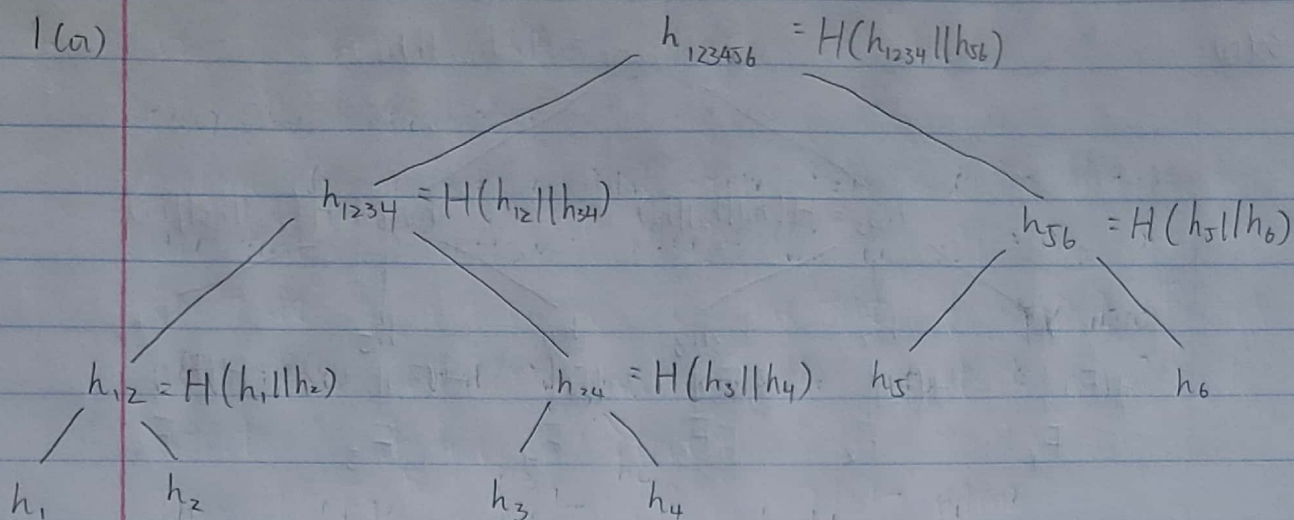 1(a)
h₁₂₃₄₅₆ = H(h₁₂₃₄||h₅₆)
h₁₂₃₄ = H(h₁₂||h₃₄)
h₅₆ = H(h₅||h₆)
h₁₂ = H(h₁||h₂)
h₃₄ = H(h₃||h₄)
h₅
h₆
h₁
h₂
h₃
h₄